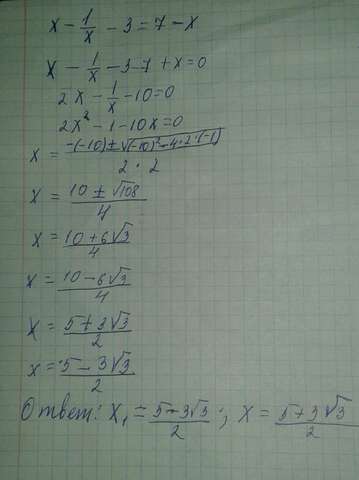 x - 1/x - 3 = 7 - x
x - 1/x - 3 - 7 + x = 0
2x - 1/x - 10 = 0
2x² - 1 - 10x = 0
x = (-(-10) ± √((-10)² - 4 · 2 · (-1)))/(2 · 2)
x = (10 ± √108)/4
x = (10 + 6√3)/4
x = (10 - 6√3)/4
x = (5 + 3√3)/2
x = (5 - 3√3)/2
Ответ: x₁ = (5 - 3√3)/2 ; x = (5 + 3√3)/2